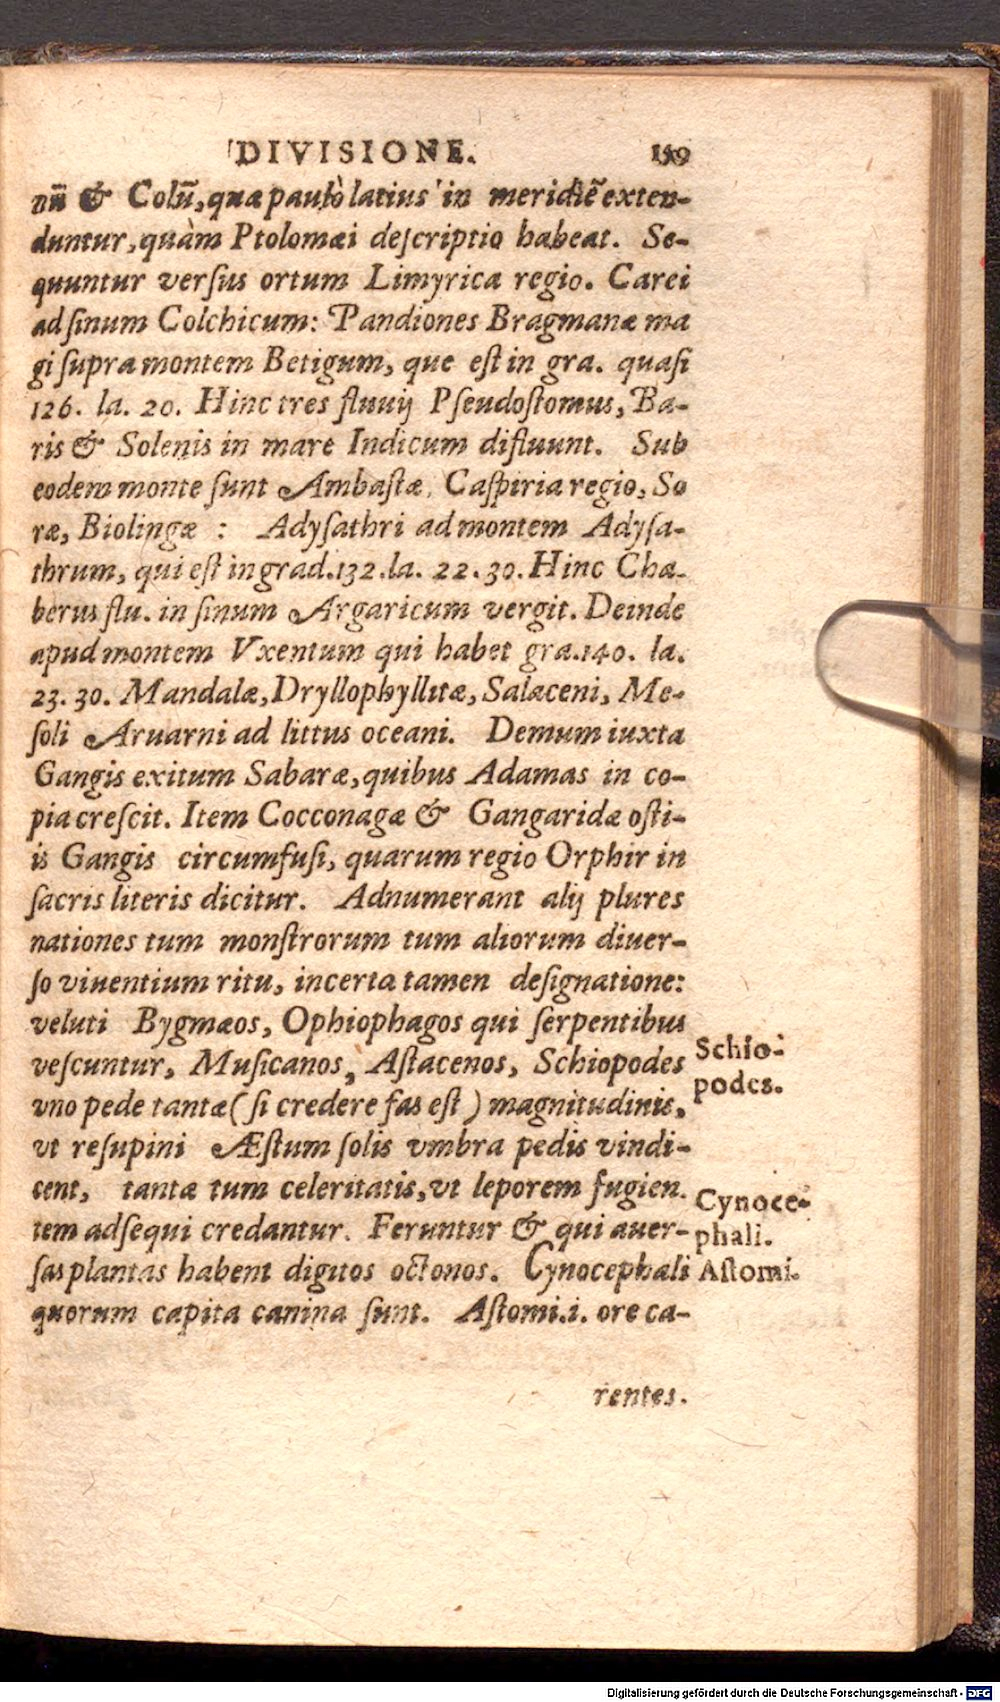 DIVISIONE. 159
nũ & Colũ, quæ paulò latius in meridiẽ exten-
duntur, quàm Ptolomæi descriptio habeat. Se-
quuntur verſus ortum Limyrica regio. Carei
ad ſinum Colchicum: Pandiones Bragmanæ ma
gi ſupra montem Betigum, que eſt in gra. quaſi
126. la. 20. Hinc tres fluuij Pſeudoſtomus, Ba-
ris & Solenis in mare Indicum difluunt. Sub
eodem monte ſunt Ambaſtæ, Caſpiria regio, So
ræ, Biolingæ : Adyſathri ad montem Adyſa-
thrum, qui eſt in grad. 132. la. 22. 30. Hinc Cha-
berus flu. in ſinum Argaricum vergit. Deinde
apud montem Vxentum qui habet gra. 140. la.
23. 30. Mandalæ, Dryllophyllitæ, Salaceni, Me-
ſoli Aruarni ad littus oceani. Demum iuxta
Gangis exitum Sabaræ, quibus Adamas in co-
pia creſcit. Item Cocconagæ & Gangaridæ oſti-
is Gangis circumfuſi, quarum regio Orphir in
ſacris literis dicitur. Adnumerant alij plures
nationes tum monſtrorum tum aliorum diuer-
ſo viuentium ritu, incerta tamen deſignatione:
veluti Bygmæos, Ophiophagos qui ſerpentibus
veſcuntur, Muſicanos, Aſtacenos, Schiopodes
vno pede tantæ ( ſi credere fas eſt ) magnitudinis,
vt reſupini Æſtum ſolis vmbra pedis vindi-
cent, tantæ tum celeritatis, vt leporem fugien.
tem adſequi credantur. Feruntur & qui auer-
ſas plantas habent digitos octonos. Cynocephali
quorum capita canina ſunt. Aſtomi. i. ore ca-
rentes.
Schio-
podes.
Cynoce-
phali.
Aſtomi.
Digitalisierung gefördert durch die Deutsche Forschungsgemeinschaft - DFG